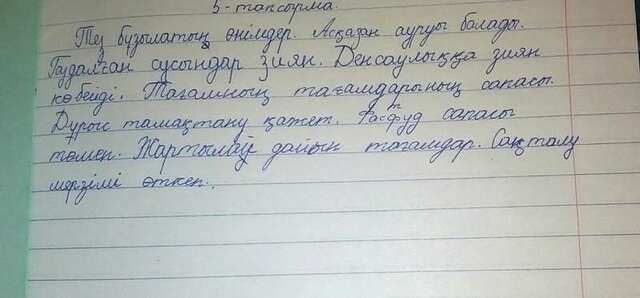 3-тапсырма.
Тез бұзылатын өнімдер. Асқазан ауруы болады.
Газдалған сусындар зиян. Денсаулыққа зиян
көбейді. Тағамның тағамдарының сапасы.
Дұрыс тамақтану қажет. Фастфуд сапасы
төмен. Жартылау дайын тағамдар. Сақталу
мерзімі өткен.